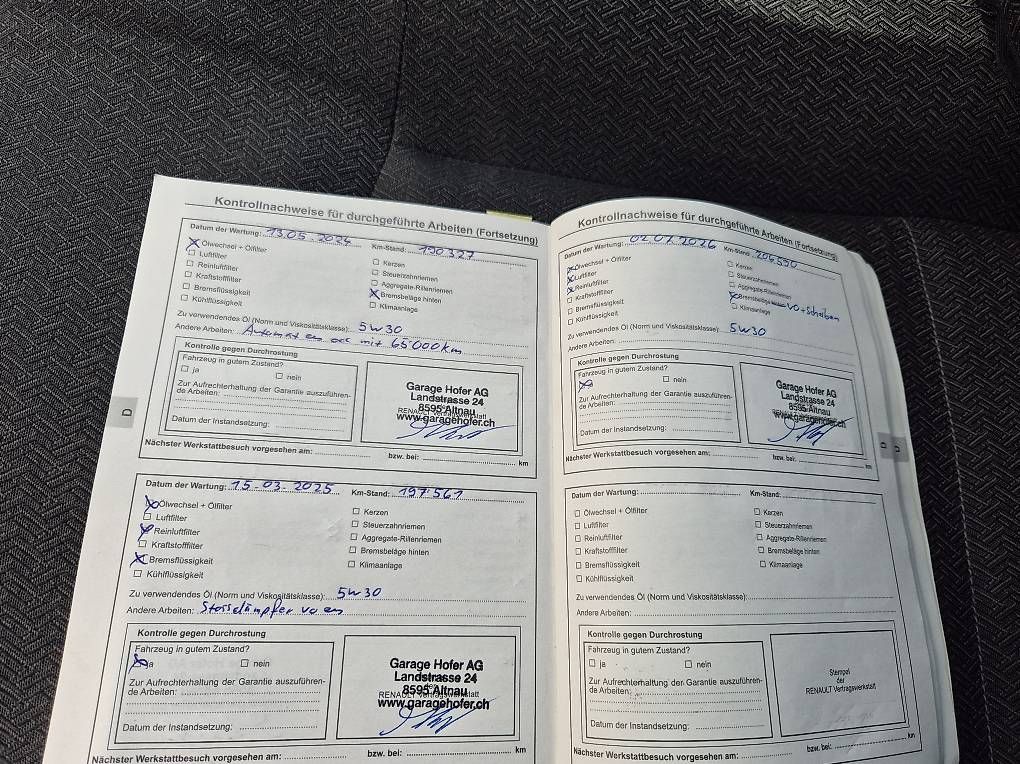 Kontrollnachweise für durchgeführte Arbeiten (Fortsetzung)
Datum der Wartung: 13.05.2024 Km-Stand: 190327
Ölwechsel + Ölfilter
Luftfilter
Reinluftfilter
Kraftstofffilter
Bremsflüssigkeit
Kühlflüssigkeit
Kerzen
Steuerzahnriemen
Aggregate-Rillenriemen
Bremsbeläge hinten
Klimaanlage
Zu verwendendes Öl (Norm und Viskositätsklasse): 5w30
Andere Arbeiten: mit 65000km
Kontrolle gegen Durchrostung
Fahrzeug in gutem Zustand?
ja nein
Zur Aufrechterhaltung der Garantie auszuführen-
de Arbeiten:
Datum der Instandsetzung:
Garage Hofer AG
Landstrasse 24
8595 Altnau
RENAULT Vertragswerkstatt
www.garagehofer.ch
Nächster Werkstattbesuch vorgesehen am: bzw. bei: km
Datum der Wartung: 15.03.2025 Km-Stand: 197'561
Ölwechsel + Ölfilter
Luftfilter
Reinluftfilter
Kraftstofffilter
Bremsflüssigkeit
Kühlflüssigkeit
Kerzen
Steuerzahnriemen
Aggregate-Rillenriemen
Bremsbeläge hinten
Klimaanlage
Zu verwendendes Öl (Norm und Viskositätsklasse): 5w30
Andere Arbeiten: Stossdämpfer vo
Kontrolle gegen Durchrostung
Fahrzeug in gutem Zustand?
ja nein
Zur Aufrechterhaltung der Garantie auszuführen-
de Arbeiten:
Datum der Instandsetzung:
Garage Hofer AG
Landstrasse 24
8595 Altnau
RENAULT Vertragswerkstatt
www.garagehofer.ch
Nächster Werkstattbesuch vorgesehen am: bzw. bei: km
D
Kontrollnachweise für durchgeführte Arbeiten (Fortsetzung)
Datum der Wartung: Km-Stand: 206590
Ölwechsel + Ölfilter
Luftfilter
Reinluftfilter
Kraftstofffilter
Bremsflüssigkeit
Kühlflüssigkeit
Kerzen
Steuerzahnriemen
Aggregate-Rillenriemen
Bremsbeläge hinten VO + Scheiben
Klimaanlage
Zu verwendendes Öl (Norm und Viskositätsklasse): 5w30
Andere Arbeiten:
Kontrolle gegen Durchrostung
Fahrzeug in gutem Zustand?
ja nein
Zur Aufrechterhaltung der Garantie auszuführen-
de Arbeiten:
Datum der Instandsetzung:
Garage Hofer AG
Landstrasse 24
8595 Altnau
www.garagehofer.ch
Nächster Werkstattbesuch vorgesehen am: bzw. bei: km
Datum der Wartung: Km-Stand:
Ölwechsel + Ölfilter
Luftfilter
Reinluftfilter
Kraftstofffilter
Bremsflüssigkeit
Kühlflüssigkeit
Kerzen
Steuerzahnriemen
Aggregate-Rillenriemen
Bremsbeläge hinten
Klimaanlage
Zu verwendendes Öl (Norm und Viskositätsklasse):
Andere Arbeiten:
Kontrolle gegen Durchrostung
Fahrzeug in gutem Zustand?
ja nein
Zur Aufrechterhaltung der Garantie auszuführen-
de Arbeiten:
Datum der Instandsetzung:
Stempel
der
RENAULT Vertragswerkstatt
Nächster Werkstattbesuch vorgesehen am: bzw. bei: km
D
D